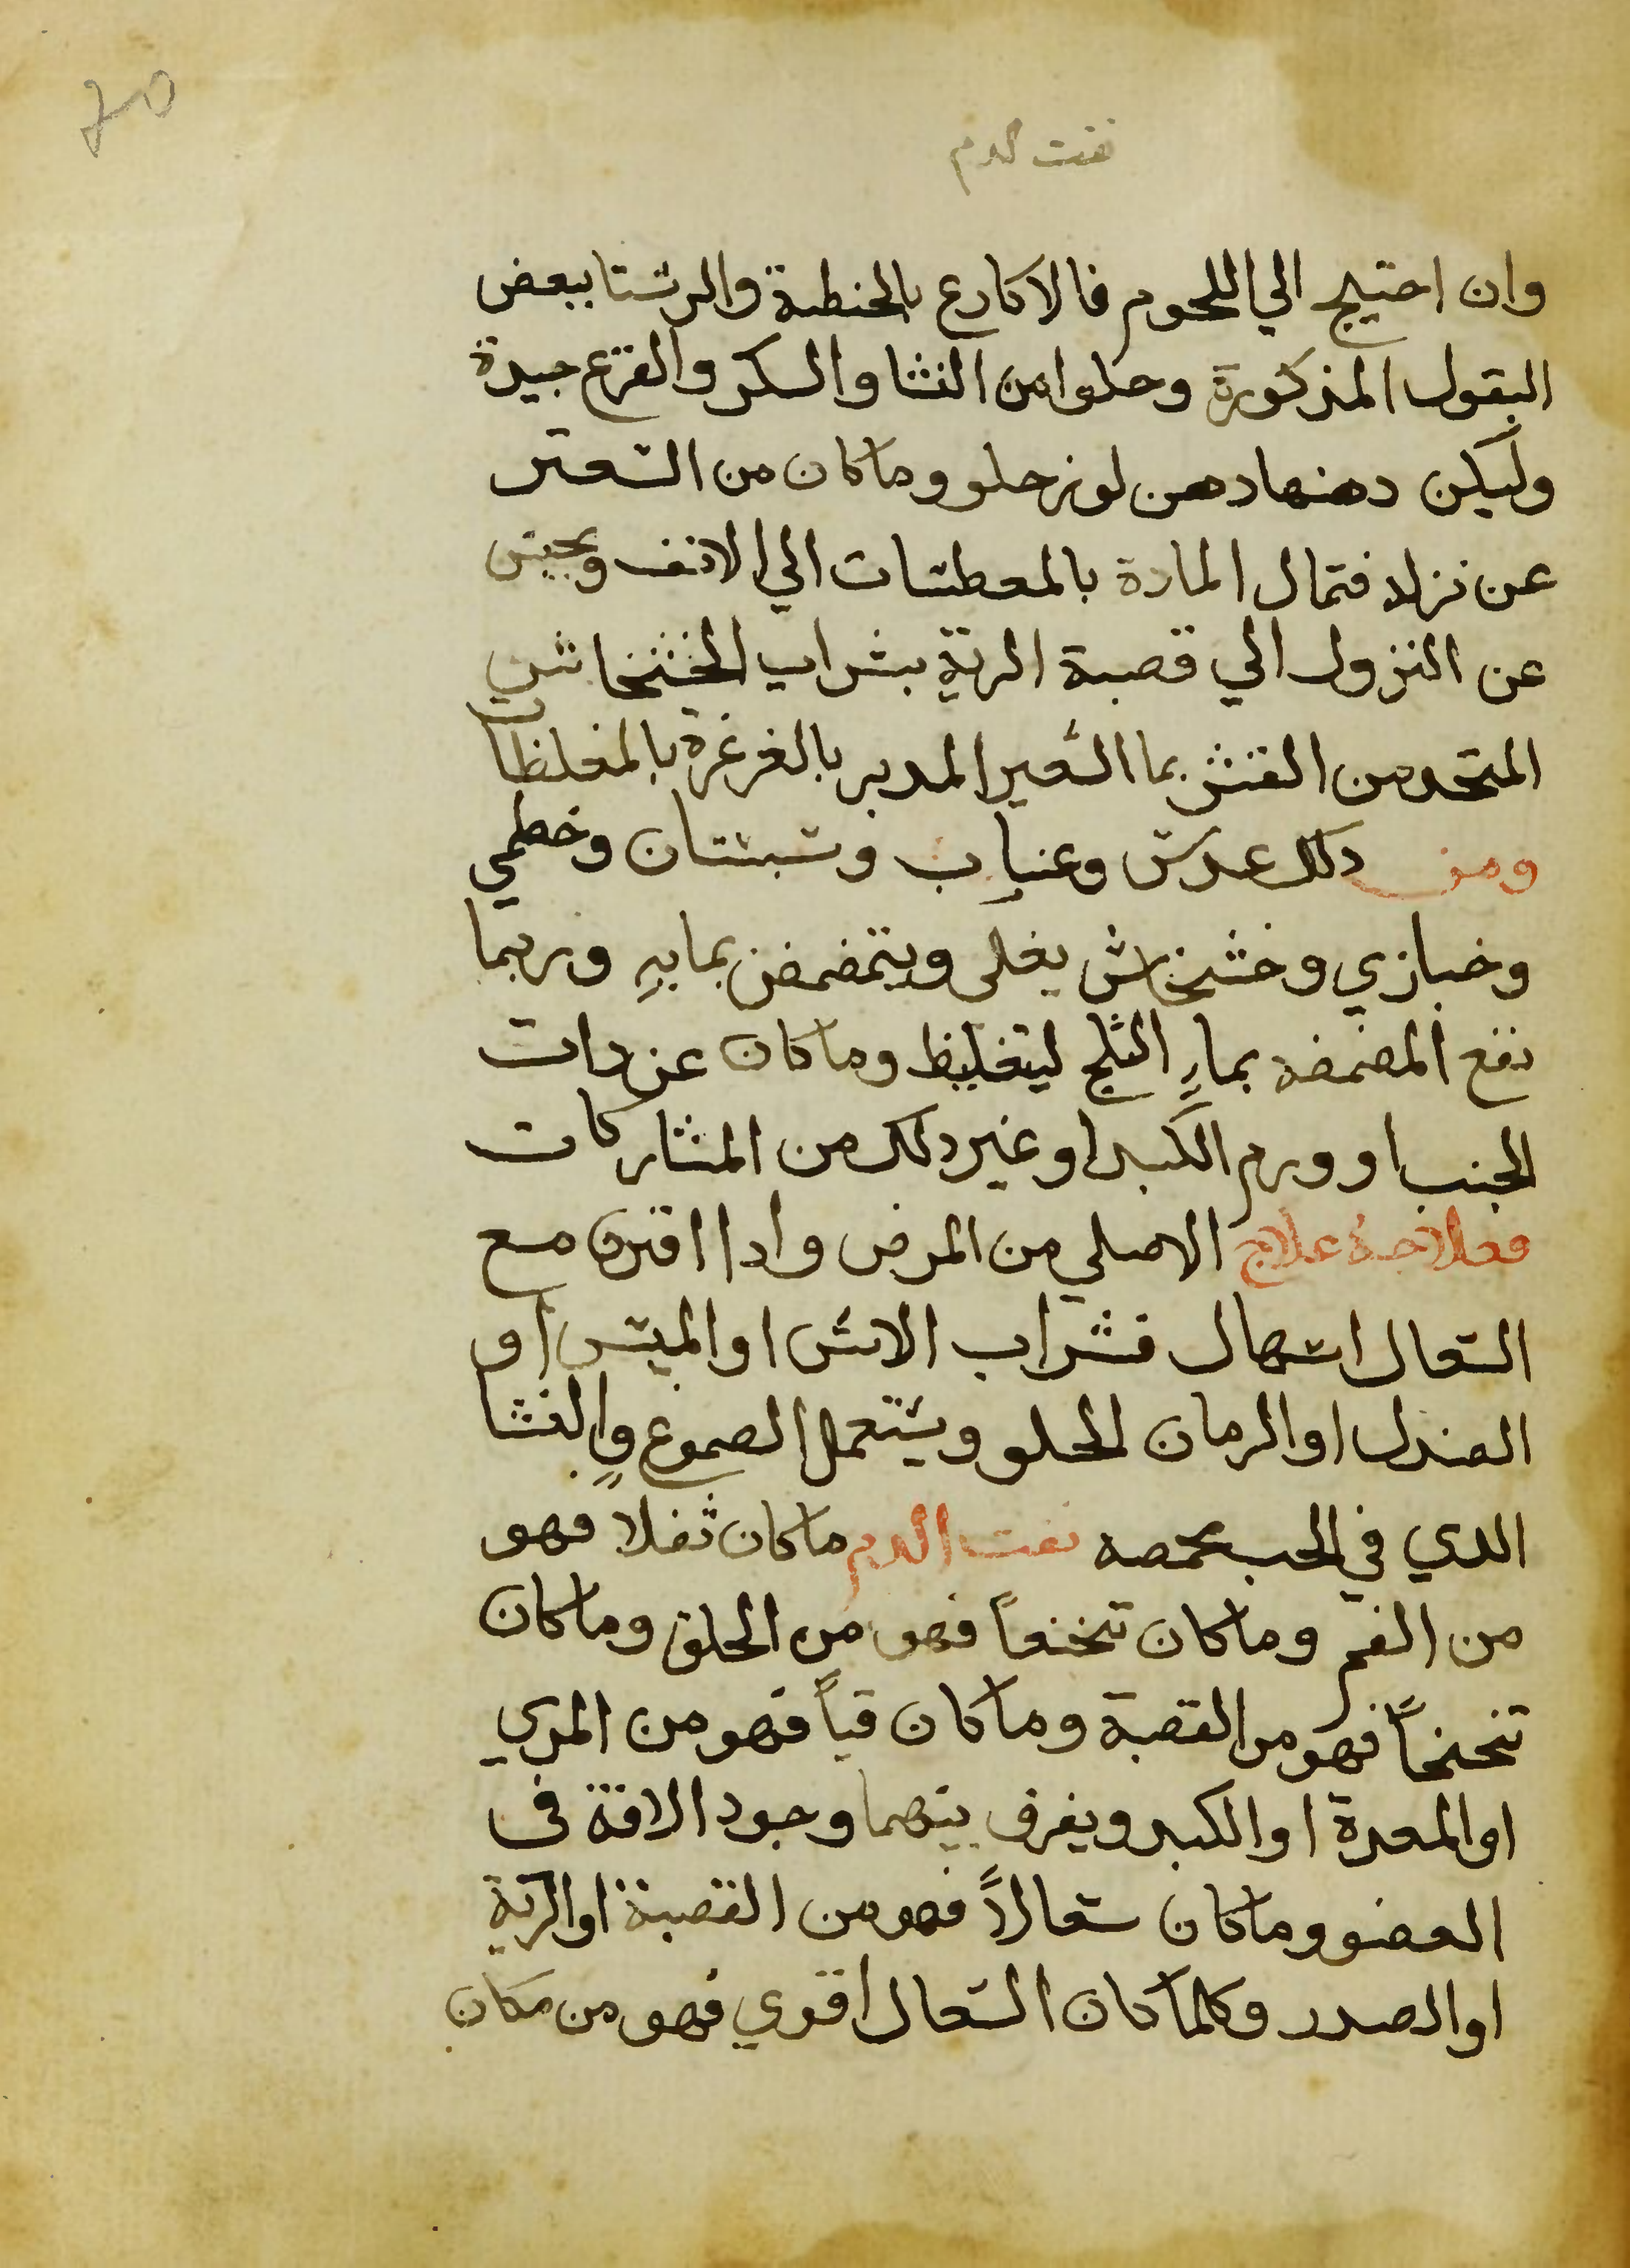 70
نفت الدم
وان احتيج الي اللحوم فالاكارع بالحنطة والرشتا ببعض
البقول المذكورة وحلوا من النشا والسكر والقرع جيدة
وليكن دهنها دهن لوز حلو وما كان من السعال
عن نزله فتمال المادة بالمعطسات الي الانف ويحبس
عن النزول الي قصبة الرية بشراب الخشخاش
المتخد من القشر بما الشعير المدبر بالغرغرة بالمغلظات
ومن دلك عدس وعناب وسبستان وخطمي
وخبازي وخشخاش يغلى ويتمضمض بمايهِ وربما
نفع المضمضه بماءِ الثلج ليتغليظ وما كان عن دات
الجنب او ورم الكبد او غير دلك من المشاركات
فعلاجهُ علاج الاصلي من المرض وادا اقترن مع
السعال اسهال فشراب الاس او الميس او
الصندل او الرمان الحلو ويستعمل الصموغ والنشا
الدي في الحب محمصه نفت الدم ما كان ثفلا فهو
من الفم وما كان تنخعاً فهو من الحلق وما كان
تنحنحاً فهو من القصبة وما كان قياً فهو من المري
او المعدة او الكبد ويفرق بينهما وجود الافة في
العضو وما كان سعالاً فهو من القصبة او الرية
او الصدر وكلما كان السعال اقوي فهو من مكان